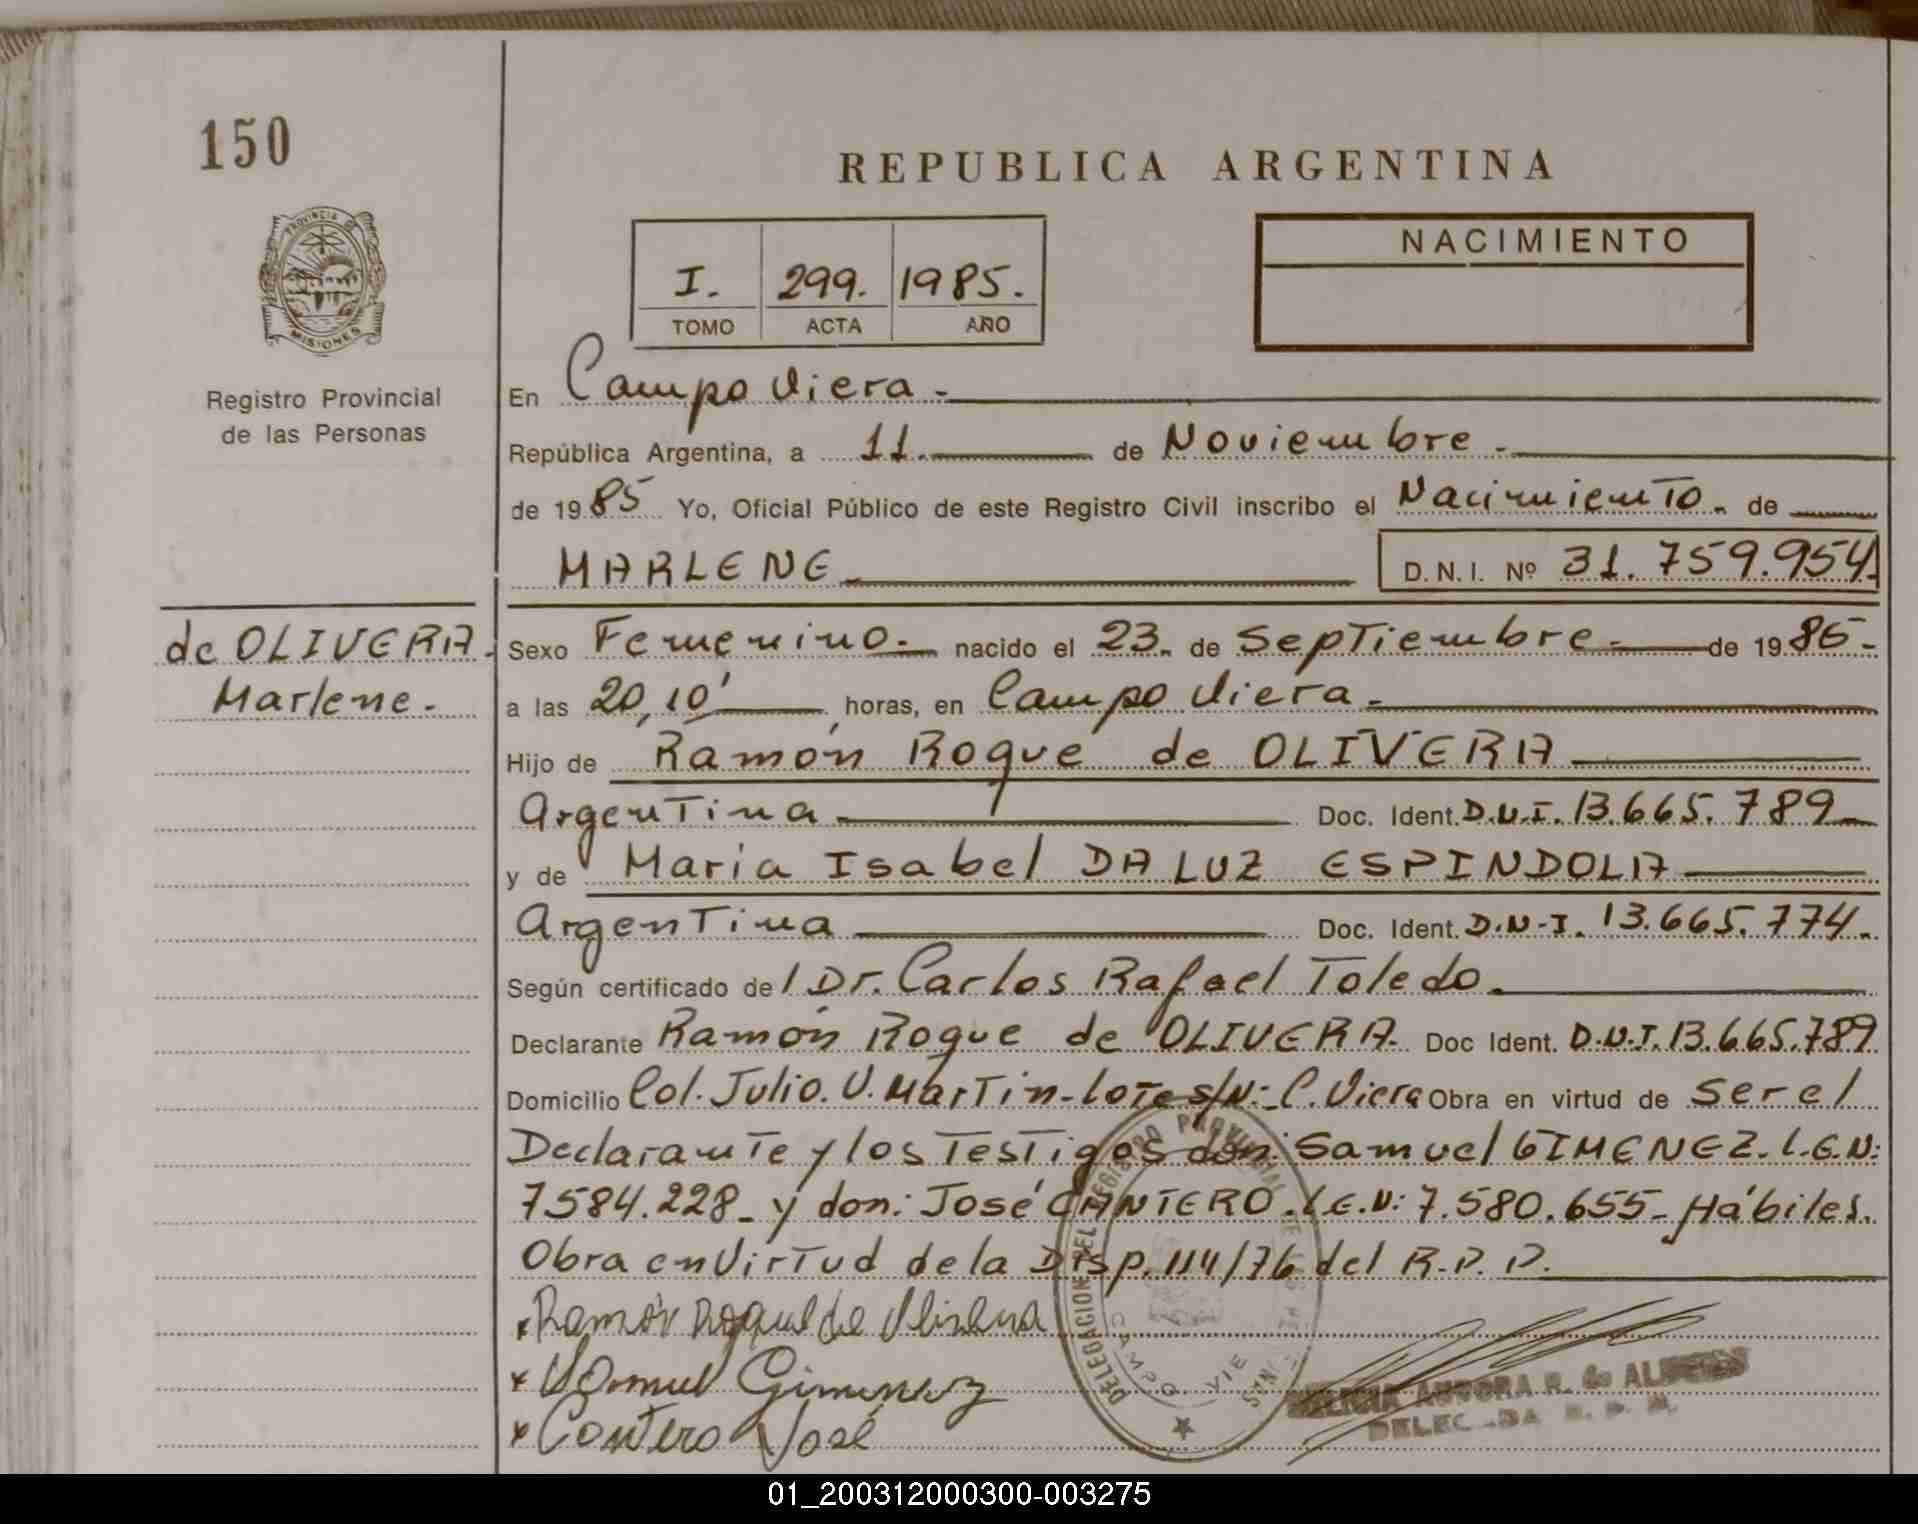 150
REPUBLICA ARGENTINA
PROVINCIA DE
MISIONES
I. 299. 1985.
TOMO ACTA AÑO
NACIMIENTO
Registro Provincial
de las Personas
En Campo Viera.
República Argentina, a 11. de Noviembre.
de 1985 Yo, Oficial Público de este Registro Civil inscribo el Nacimiento. de
MARLENE D.N.I. Nº 31.759.954
de OLIVERA.
Marlene.
Sexo Femenino. nacido el 23. de Septiembre. de 1985.
a las 20,10' horas, en Campo Viera.
Hijo de Ramón Roque de OLIVERA
Argentina Doc. Ident. D.N.I. 13.665.789
y de Maria Isabel DA LUZ ESPINDOLA
Argentina Doc. Ident. D.N.I. 13.665.774.
Según certificado del Dr. Carlos Rafael Toledo.
Declarante Ramón Roque de OLIVERA. Doc Ident. D.N.I. 13.665.789
Domicilio Col. Julio. U. Martin-lote s/N:-C. Viera Obra en virtud de ser el
Declarante y los testigos don: Samuel GIMENEZ. L.E.N:
7584.228- y don: José CANTERO. L.E.N: 7.580.655- Hábiles.
Obra en Virtud de la Disp. 114/76 del R.P.P.
x Ramón Roque de Olivera
x Samuel Gimenez
x Cantero José
DELEGACION DEL REGISTRO PROVINCIAL DE LAS PERSONAS
CAMPO VIE
AURORA R. de
01_200312000300-003275